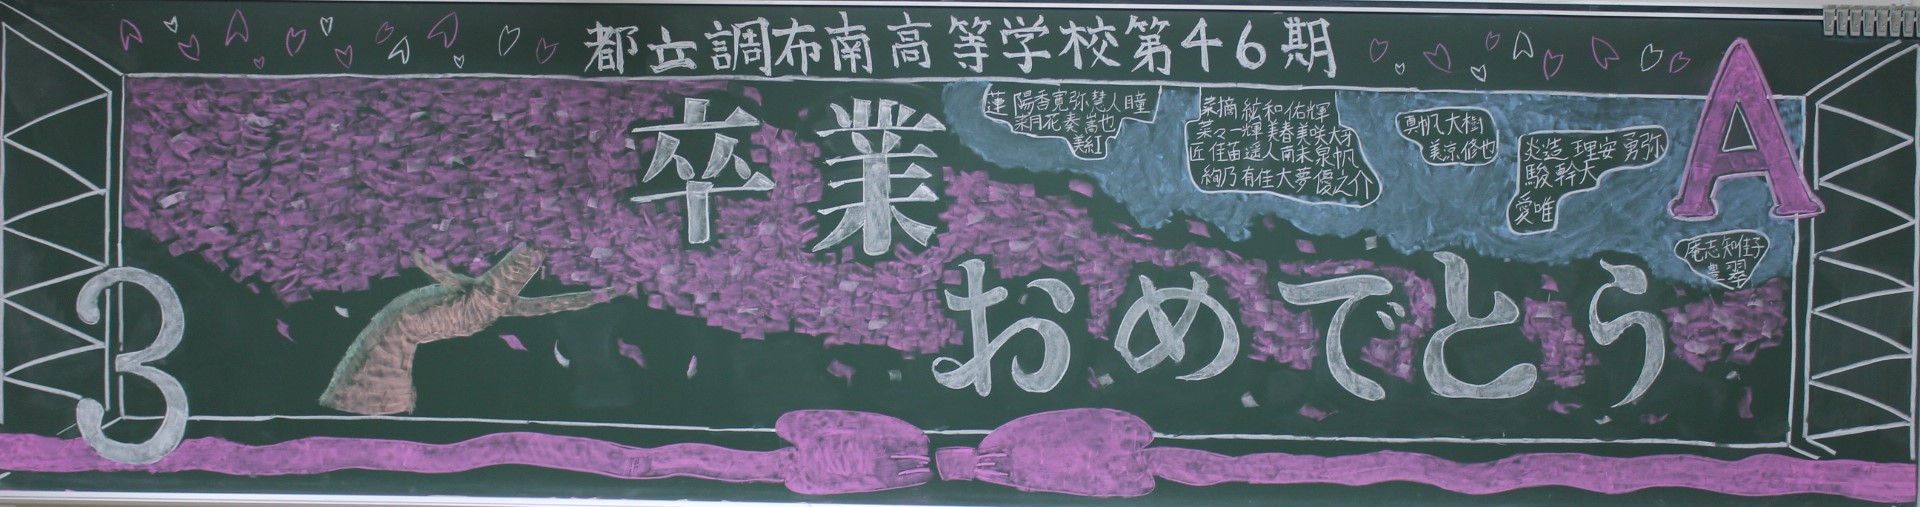 都立調布南高等学校第46期
卒業
おめでとう
3
A
蓮 陽香寛弥慧人瞳
菜月花奏嵩也
美紅
菜摘 絃和佑輝
菜々一輝美春美咲大
匠佳笛遥人南 泉帆
絢乃有佳大夢優之介
真帆大樹
美涼修也
炎造理安勇弥
駿幹大
愛唯
志知佳子
豊翠